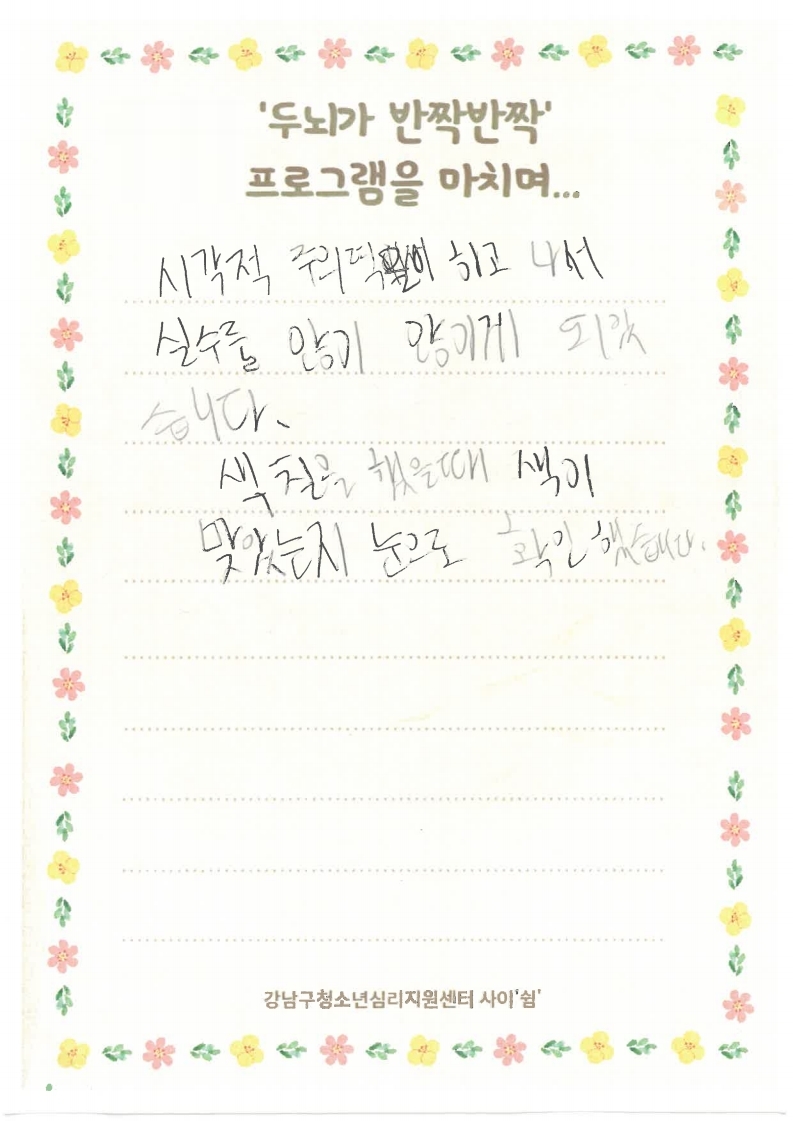 '두뇌가 반짝반짝'
프로그램을 마치며...
시각적 주의력 하고 나서
실수를 않기 않이게 되았
습니다.
색칠을 했을때 색이
맞았는지 눈으로 확인했습니다.
강남구청소년심리지원센터 사이'쉼'